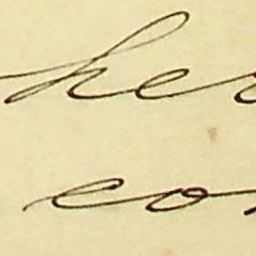 her
co